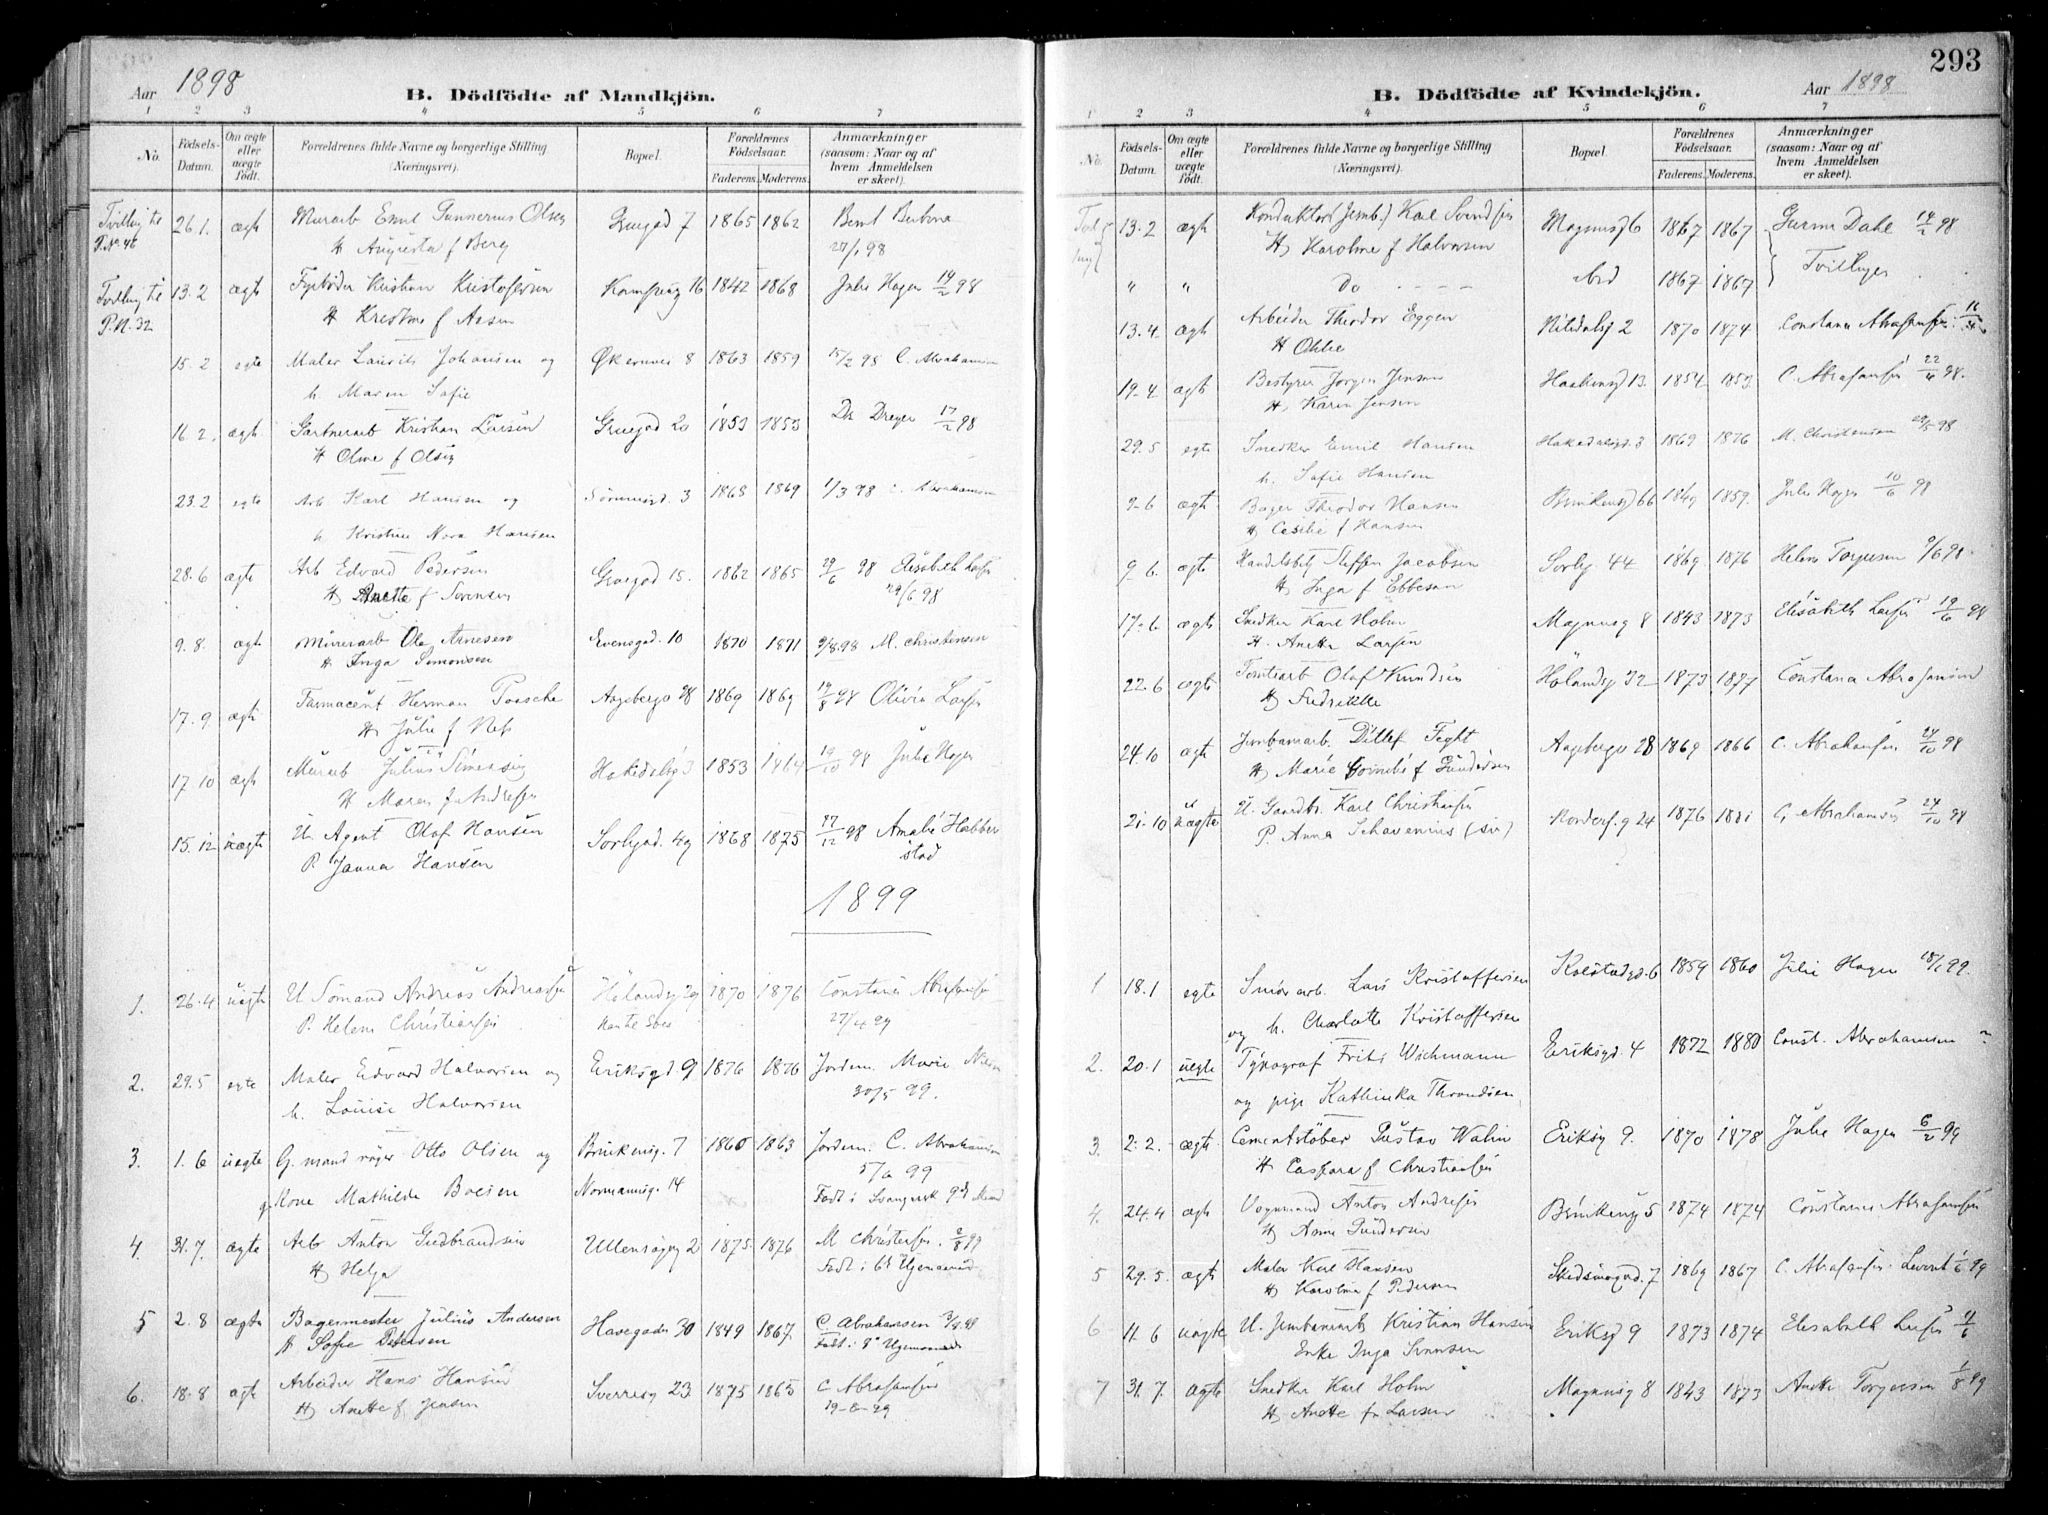 Aar 1898
B. Dödfödte af Mandkjön.
1 2 3 4 5 6 7
No.
Födsels-Datum.
Om ægte eller uægte födt.
Forældrenes fulde Navne og borgerlige Stilling (Næringsvei).
Bopæl.
Forældrenes Födselsaar.
Faderens. Moderens.
Anmærkninger (saasom: Naar og af hvem Anmeldelsen er skeet).
Tvilling til 26.1. ægte Murarb Emil Gunnerius Olsen Gruegad 7 1865 1862 Berit
P. No 46 H Augusta f Berg 27/1 98
Tvilling til 13.2 ægte Fyrböder Kristian Kristofersen Kampeng 16 1842 1868 Julie Hagen 14/2 98
P. N. 32 H Kristine f Aasen
15.2 egte Maler Laurits Johansen og Økernvei 8 1863 1859 15/2 98 C. Abrahamsen
h. Maren Sofie
16.2. ægte Gartnerarb Kristian Larsen Gruegad 20 1853 1853 Dr Dreyer 17/2 98
H Oline f Olsen
23.2 egte Arb Karl Hansen og Sörumsgd. 3 1868 1869 1/3 98 C. Abrahamsen
h. Kristine Nora Hansen
28.6 ægte Arb Edvard Pedersen Gruegad 15. 1862 1865 29/6 98 Elisabeth Larsen
H Anette f Sorensen 29/6 98
9.8. ægte Murerarb Ola Arnesen Evensgad. 10 1870 1871 9/8.98 M. Christensen
H Inga Simonsen
17.9 ægte Farmaceut Herman Paasche Aagebergv 28 1869 1869 19/8 98 Olivia Larsen
H Julie f
17 10 ægte Murarb Julius Simensen Hakedalsg 3 1853 1864 19/10 98 Julie Hagen
H Maren f Andresen
15.12 uægte U. Agent Olof Hansen Sorligad. 49 1868 1875 27/12 98 Amalie Habber
P. Janna Hansen stad
1899
1. 26.4 uægte U Sömand Andreas Andreasen Hölandsg 29 1870 1876 Constance Abrahamsen
P. Helene Christiansen 27/4 99
2. 29.5 egte Maler Edvard Halvorsen og Eriksgd 9 1876 1876 Jordem. Marie
h. Louise Halvorsen 30/5 99.
3. 1.6 uegte G. mand Otto Olsen og Brinkensg. 7 1860 1863 Jordem. C. Abrahamsen
5/6 99
g. Kone Mathilde Boesen Normannsg. 14 Født i Svangersk 9de Mnd
4 31.7. ægte Arb Anton Gudbrandsen Ullensagerg 2 1875 1876 M Christensen. 2/8 99
H Helga Født i 6t Ugemaaned
5 2.8 ægte Bagermester Julius Andersen Havegaden 30 1849 1867. C Abrahamsen 3/8 99
H Sofie Petersen
6. 18-8 ægte Arbeider Hans Hansen Sverresg 23 1875 1865 C Abrahamsen
H Anette f Jensen 19-8-99
293
B. Dödfödte af Kvindekjön.
Aar 1898
1 2 3 4 5 6 7
No.
Födsels-Datum.
Om ægte eller uægte födt.
Forældrenes fulde Navne og borgerlige Stilling (Næringsvei).
Bopæl.
Forældrenes Födselsaar.
Faderens. Moderens.
Anmærkninger (saasom: Naar og af hvem Anmeldelsen er skeet).
13.2 ægte Konduktor (Jernb.) Karl Svendsen Magnusg 6 1867 1867 Gurine Dahl 14/2 98
H Karoline f Halvorsen
" " Do - - - - ibid 1867 1867 Tvillinger
13.4. ægte Arbeider Theodor Eggen Nitedalsg 2 1870 1874 Constance Abrahamsen
H
19-4 ægte Bestyrer Jorgen Jensen Haakonsg 13. 1854 1853. C. Abrahamsen 22/4 98.
H Karen Jensen
29.5 egte Snedker Emil Hansen Hakedalsgd. 3 1869 1876 M. Christensen 29/5 98
h. Sofie Hansen
9-6 ægte Bager Theodor Hansen Brinkensg 66 1849 1859. Julie Hagen 10/6 98
H Cecilie f Hansen
9.6. ægte Handelsbetj Steffen Jacobsen Sorlig. 44 1869 1876 Helene Torgersen 9/6 98.
H Inga f Ebbesen
17-6. ægte Snedker Karl Holm Magnusg 8 1843 1873 Elisabeth Larsen 19/6 98
H. Anette Larsen
22.6 ægte Tomtearb Olaf Knudsen Hölandsg 32 1873 1877 Constance Abrahamsen
H Fredrikke
24.10 ægte Jernbanearb. Ditlef Feght Aagebergv 28 1869 1866 C. Abrahamsen 24/10 98
H Marie f Gundersen
21.10 uægte U. Gaardbr. Karl Christiansen Nordref. g 24 1876 1881 C. Abrahamsen 24/10 98
P. Anna Schavenius (sic)
1 18.1 egte Smörarb. Lars Kristoffersen Kolstadgd. 6 1859 1860 Julie Hagen 18/1 99.
og h. Charlotte Kristoffersen
2. 20.1 uegte Typograf Frits Wichmann Eriksgd. 4 1872 1880 Const. Abrahamsen
og pige Kathinka Throndsen.
3. 2.2. ægte. Cementstöber Gustav Walin Eriksg 9. 1870 1878 Julie Hagen 6/2 99
H Caspara f Christiansen
4. 24.4 ægte Vognmand Anton Andresen Brinkensg 5 1874 1874 Constance Abrahamsen
H Anne Gundersen
5 29.5. ægte Maler Karl Hansen Skedsmogd. 7 1869 1867 C. Abrahamsen
H Karoline f Pedersen
6 11.6 uægte U. Jernbanearb Kristian Hansen Eriksg 9 1873 1874 Elisabeth Larsen
Enke Inga
7 31.7. ægte Snedker Karl Holm Magnusg 8 1843 1873 Anette Torgersen 1/8 99
H Anette f. Larsen